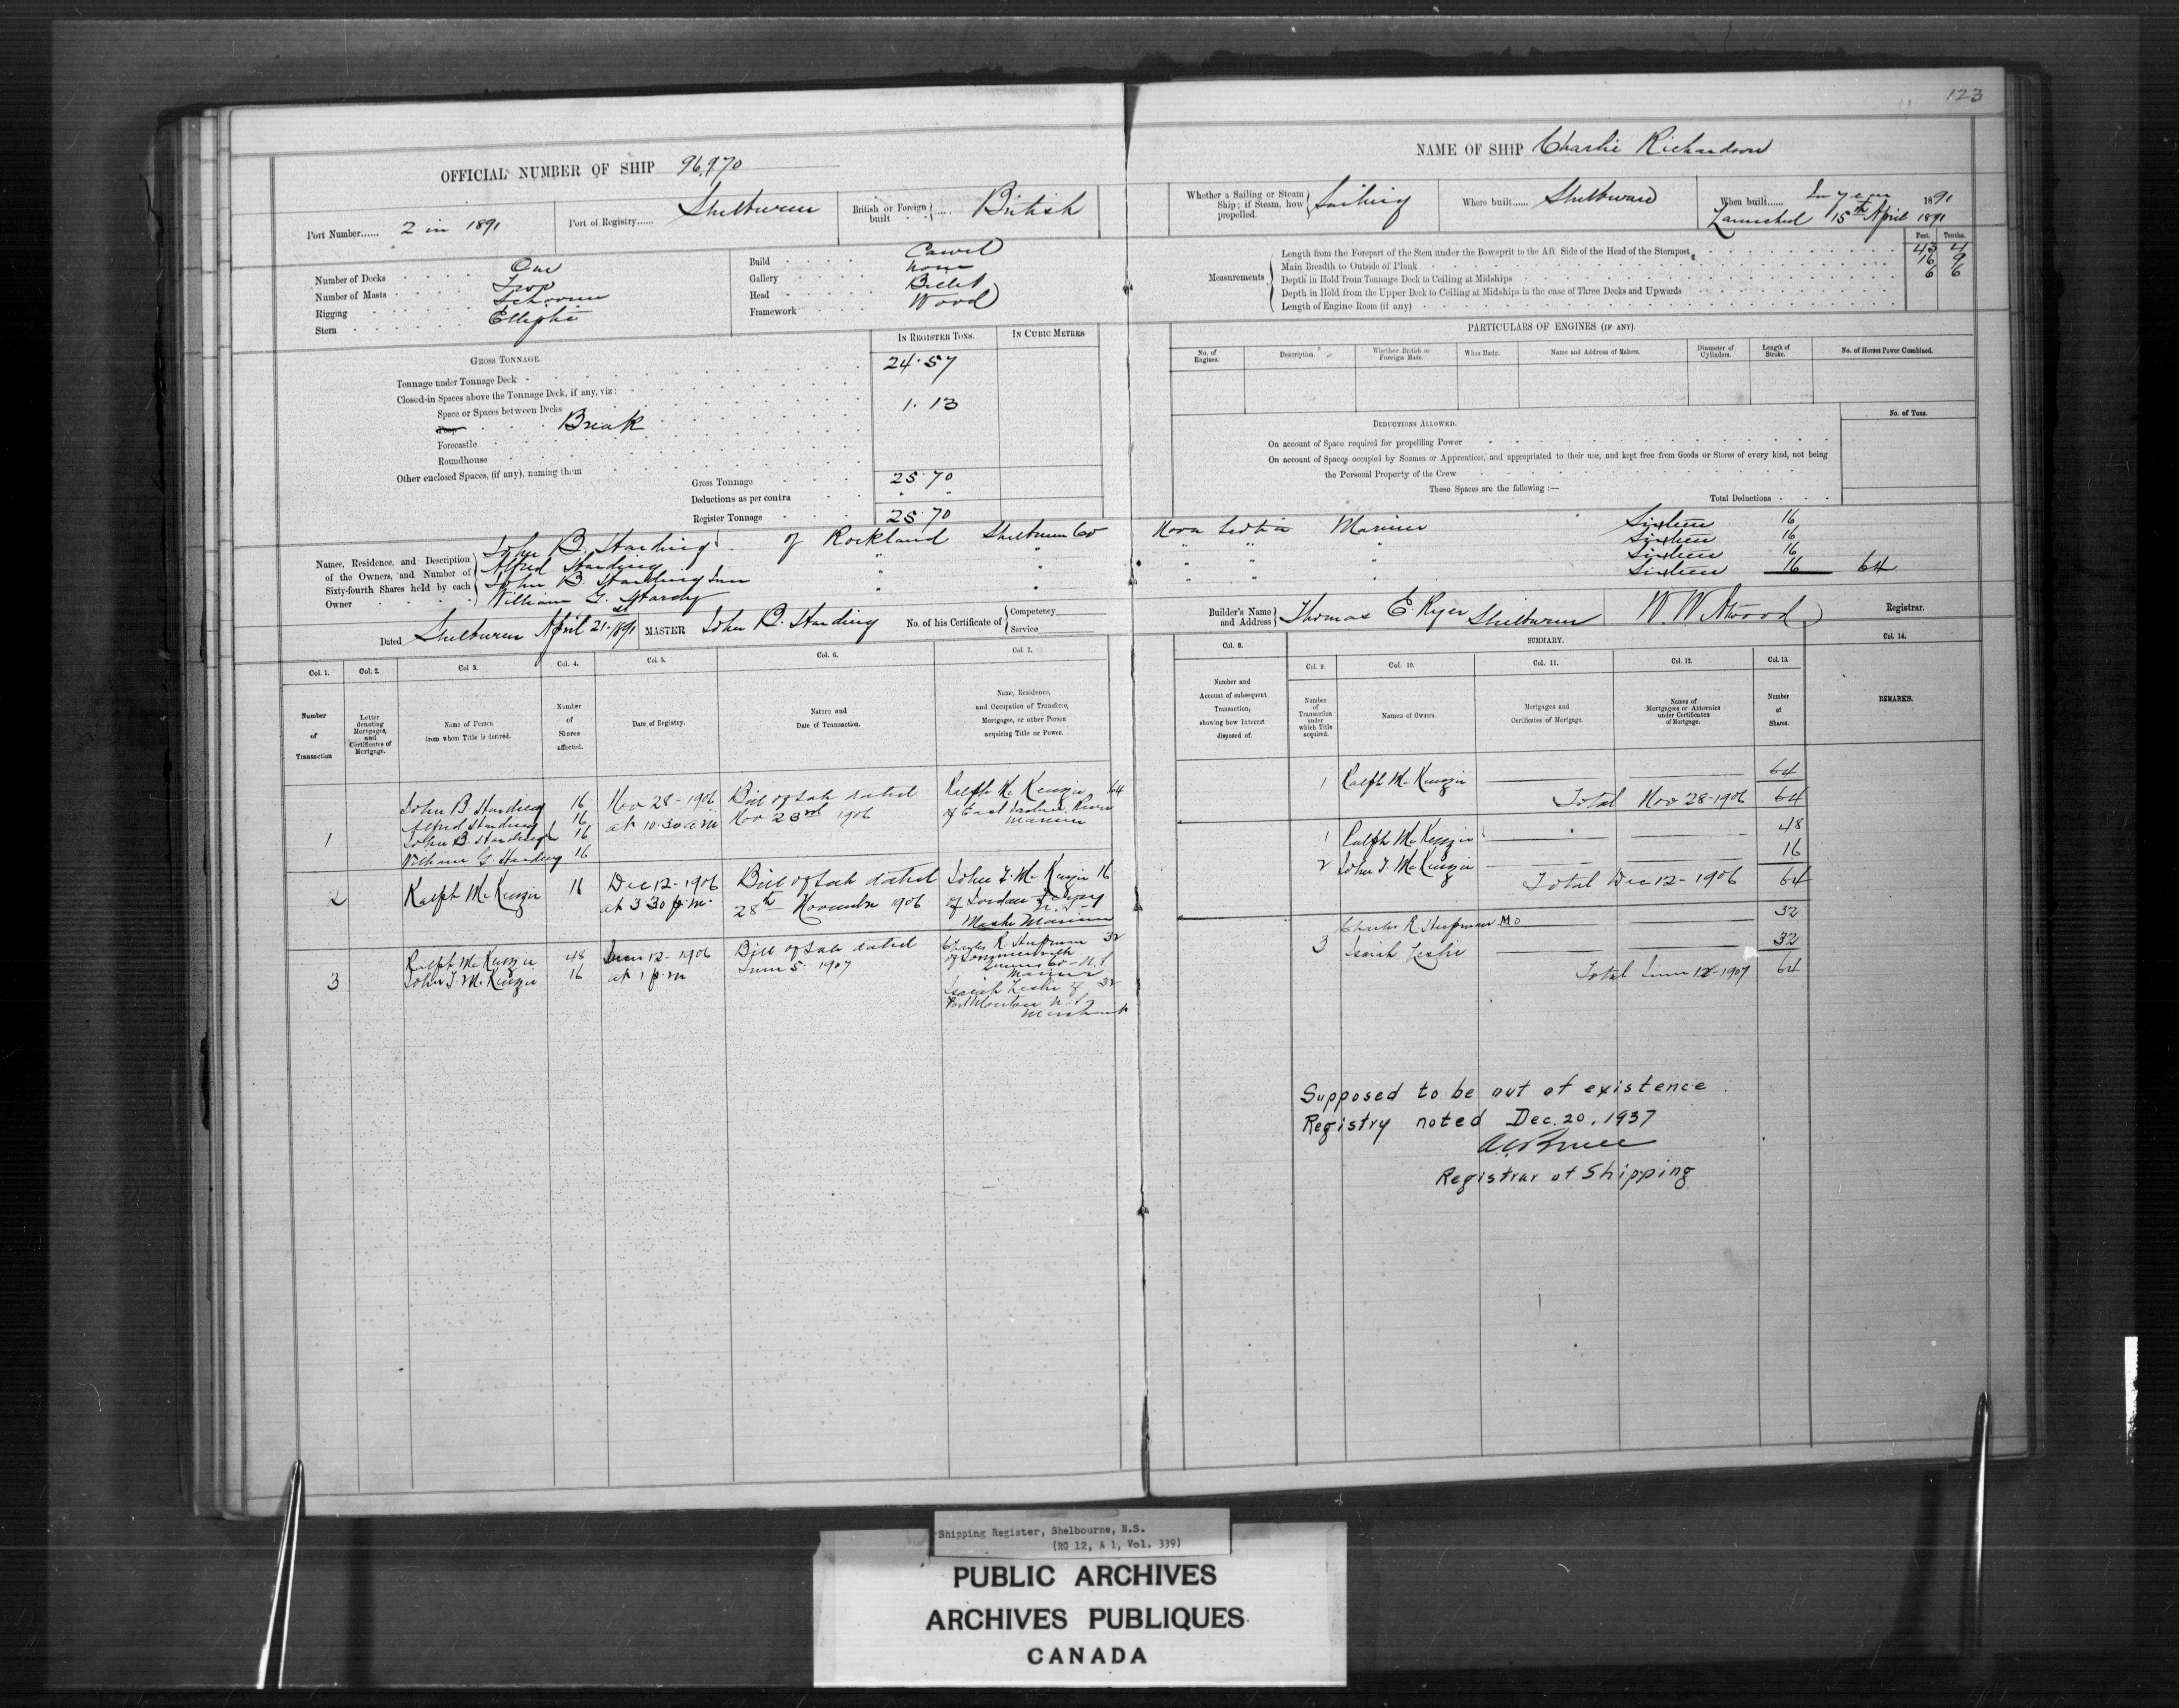 123
OFFICIAL NUMBER OF SHIP 96,970
NAME OF SHIP Charlie Richardson
Port Number...... 2 in 1891
Port of Registry...... Shelburne
British or Foreign built British
Whether a Sailing or Steam Ship; if Steam, how propelled. Sailing
Where built...... Shelburne
When built...... In year 1891
Launched 15th April 1891
Number of Decks One
Number of Masts Two
Rigging Schooner
Stern Elliptic
Build Carvel
Gallery None
Head Billet
Framework Wood
Measurements
Feet. Tenths.
Length from the Forepart of the Stem under the Bowsprit to the Aft Side of the Head of the Sternpost 43 4
Main Breadth to Outside of Plank 16 9
Depth in Hold from Tonnage Deck to Ceiling at Midships 6 6
Depth in Hold from the Upper Deck to Ceiling at Midships in the case of Three Decks and Upwards
Length of Engine Room (if any)
GROSS TONNAGE.
IN REGISTER TONS.
IN CUBIC METRES
Tonnage under Tonnage Deck 24.57
Closed-in Spaces above the Tonnage Deck, if any, viz:
Space or Spaces between Decks
Poop Break 1.13
Forecastle
Roundhouse
Other enclosed Spaces, (if any), naming them
Gross Tonnage 25.70
Deductions as per contra " "
Register Tonnage 25.70
PARTICULARS OF ENGINES (IF ANY).
No. of Engines.
Description.
Whether British or Foreign Made.
When Made.
Name and Address of Makers.
Diameter of Cylinders.
Length of Stroke.
No. of Horses Power Combined.
DEDUCTIONS ALLOWED.
No. of Tons.
On account of Space required for propelling Power
On account of Spaces occupied by Seamen or Apprentices, and appropriated to their use, and kept free from Goods or Stores of every kind, not being
the Personal Property of the Crew
These Spaces are the following :—
Total Deductions
Names, Residence, and Description of the Owners, and Number of Sixty-fourth Shares held by each Owner
John B. Harding of Rockland Shelburne Co Nova Scotia Mariner Sixteen 16
Alfred Harding " " " " " Sixteen 16
John B. Harding Junr " " " " " Sixteen 16
William G. Harding " " " " " Sixteen 16 64
Dated Shelburne April 21st 1891
MASTER John B. Harding
No. of his Certificate of Competency Service
Builder's Name and Address Thomas E. Ryer Shelburne
W. W. Atwood Registrar.
Col. 1.
Col. 2.
Col 3.
Col. 4.
Col. 5.
Col. 6.
Col. 7.
Col. 8.
SUMMARY.
Col. 9.
Col. 10.
Col. 11.
Col. 12.
Col. 13.
Col. 14.
Number of Transaction
Letter denoting Mortgages, and Certificates of Mortgage.
Name of Person from whom Title is derived.
Number of Shares affected.
Date of Registry.
Nature and Date of Transaction.
Name, Residence, and Occupation of Transferee, Mortgagee, or other Person acquiring Title or Power.
Number and Account of subsequent Transaction, showing how Interest disposed of.
Number of Transaction under which Title acquired.
Names of Owners.
Mortgages and Certificates of Mortgage.
Names of Mortgagees or Attornies under Certificates of Mortgage.
Number of Shares.
REMARKS.
1
John B Harding 16
Alfred Harding 16
John B. Harding Jr 16
William G. Harding 16
Nov 28 - 1906
at 10.30 am
Bill of Sale dated
Nov 23rd 1906
Ralph McKenzie 64
of East River
Mariner
2
Ralph McKenzie 16
Dec 12 - 1906
at 3 30 p.m.
Bill of Sale dated
28th November 1906
John T. McKenzie 16
of Jordan Ferry
N.S.
Master Mariner
3
Ralph McKenzie 48
John T. McKenzie 16
June 12 - 1906
at 1 p.m
Bill of Sale dated
June 5. 1907
Charles R. Hupman 32
of Summerville
Queens Co - N.S.
Mariner
Isaiah Leslie of 32
Port Mouton N.S.
Merchant
1 Ralph McKenzie 64
Total Nov 28-1906 64
1 Ralph McKenzie 48
2 John T. McKenzie 16
Total Dec 12 - 1906 64
3 Charles R. Hupman MO 32
Isaiah Leslie 32
Total June 12-1907 64
Supposed to be out of existence.
Registry noted Dec. 20, 1937
Registrar of Shipping
Shipping Register, Shelbourne, N.S.
(RG 12, A 1, Vol. 339)
PUBLIC ARCHIVES
ARCHIVES PUBLIQUES
CANADA